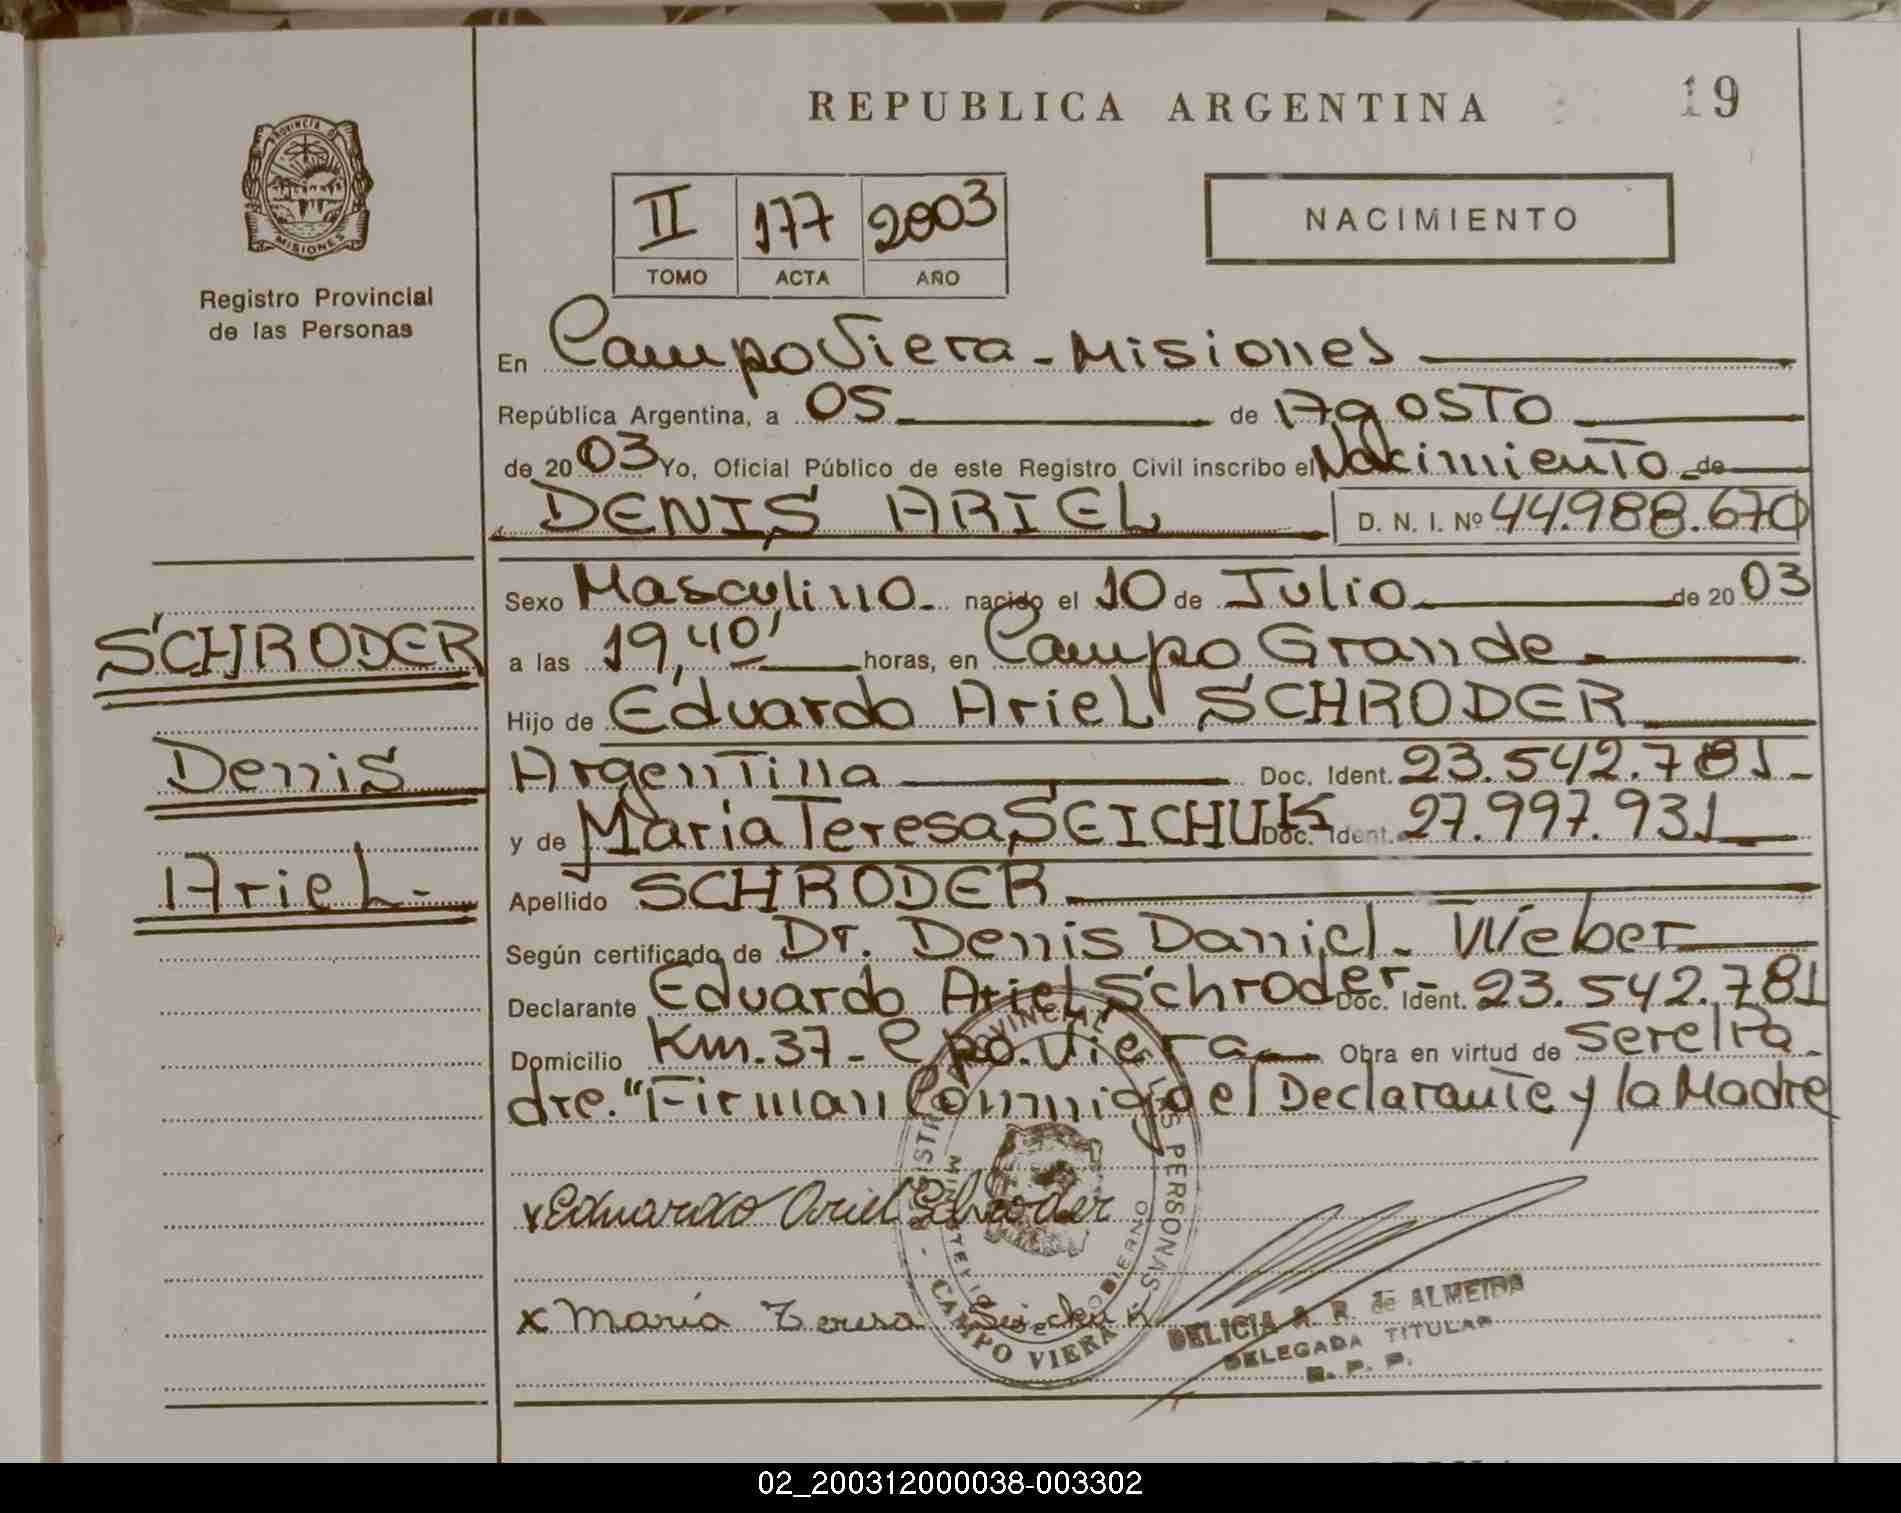 REPUBLICA ARGENTINA
19
PROVINCIA D
MISIONES
Registro Provincial
de las Personas
II 177 2003
TOMO ACTA AÑO
NACIMIENTO
En Campo Viera - Misiones
República Argentina, a 05 de Agosto
de 2003 Yo, Oficial Público de este Registro Civil inscribo el Nacimiento de
DENIS ARIEL D. N. I. Nº 44.988.670
Sexo Masculino - nacido el 10 de Julio de 2003
a las 19,40' horas, en Campo Grande -
Hijo de Eduardo Ariel SCHRODER
Argentina Doc. Ident. 23.542.781 -
y de María Teresa SEICHUK Doc. Ident. 27.997.931
Apellido SCHRODER
Según certificado de Dr. Denis Daniel - Weber
Declarante Eduardo Ariel Schroder - Doc. Ident. 23.542.781
Domicilio Km. 37 - Cpo. Viera Obra en virtud de ser el Pa -
dre. "Firman Conmigo el Declarante y la Madre
SCHRODER
Denis
Ariel -
x Eduardo Ariel Schroder
x María Teresa Seichuk
REGISTRO PROVINCIAL DE LAS PERSONAS
MINISTERIO GOBIERNO
CAMPO VIERA
DELICIA A. R. de ALMEIDA
DELEGADA TITULAR
R. P. P.
02_200312000038-003302